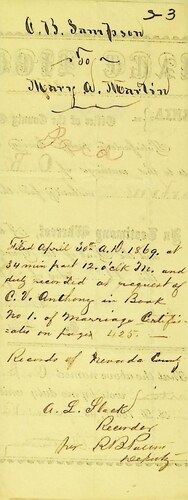 23
C. B. Sampson
To
Mary A. Martin
Filed April 30th A.D. 1869, at
34 min past 12. o'clk M. and
duly recorded at request of
C. V. Anthony in Book
No 1. of Marriage Certifi-
cates on page 425 —
Records of Nevada County
A. L. Slack
Recorder
per
Deputy